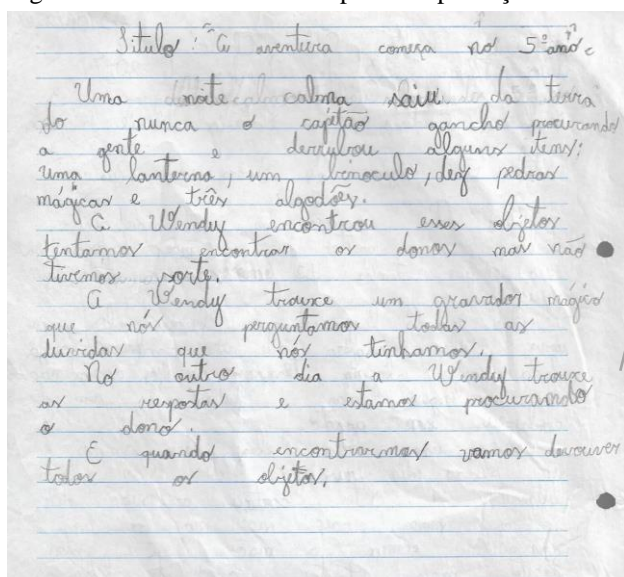 Título: "A aventura começa no 5º ano".
Uma noite calma saiu da terra
do nunca o capitão gancho procurando
a gente e derrubou alguns itens:
uma lanterna, um binoculo, dez pedras
mágicas e três algodões.
A Wendy encontrou esses objetos
tentamos encontrar os donos mas não
tivemos sorte.
A Wendy trouxe um gravador mágico
que nós perguntamos todas as
duvidas que nós tinhamos.
No outro dia a Wendy trouxe
as respostas e estamos procurando
o dono.
E quando encontrarmos vamos devouver
todos os objetos.